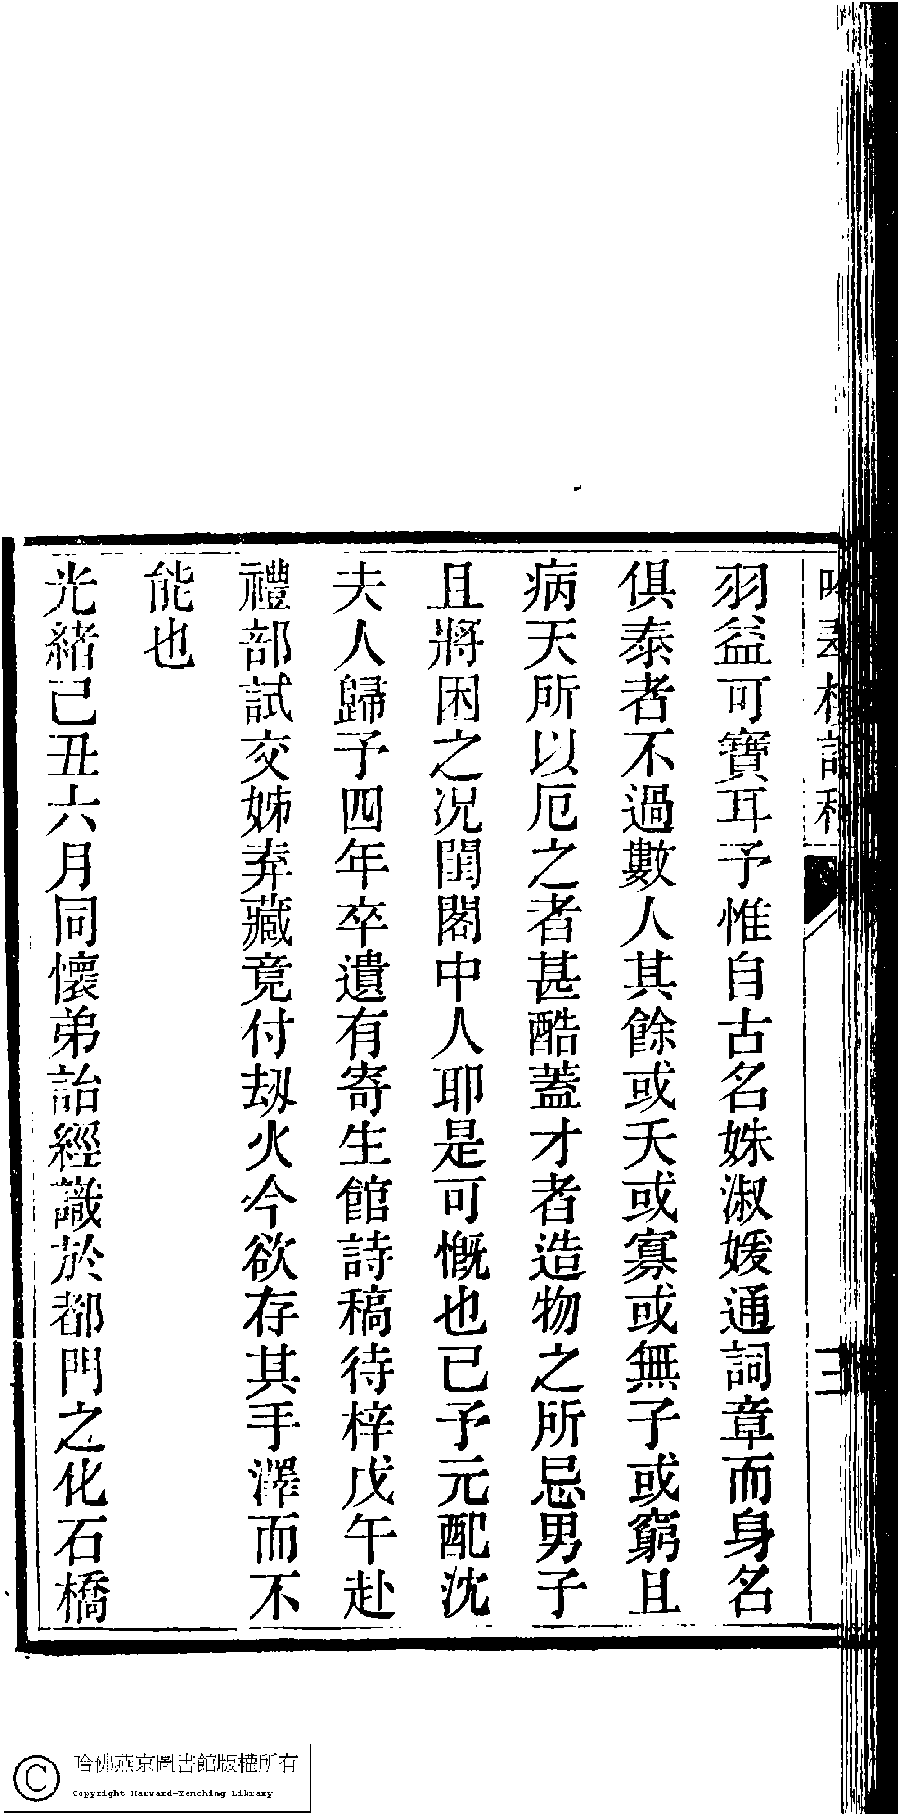 羽益可寶耳予惟自古名姝淑媛通詞章而身名
俱泰者不過數人其餘或夭或寡或無子或窮且
病天所以厄之者甚酷蓋才者造物之所忌男子
且將困之况閨閣中人耶是可慨也已予元配沈
夫人歸予四年卒遺有寄生館詩稿待梓戊午赴
禮部試交姊弆藏竟付劫火今欲存其手澤而不
能也
光緒己丑六月同懷弟詒經識於都門之化石橋
三
哈佛燕京圖書館版權所有
Copyright Harvard-Yenching Library